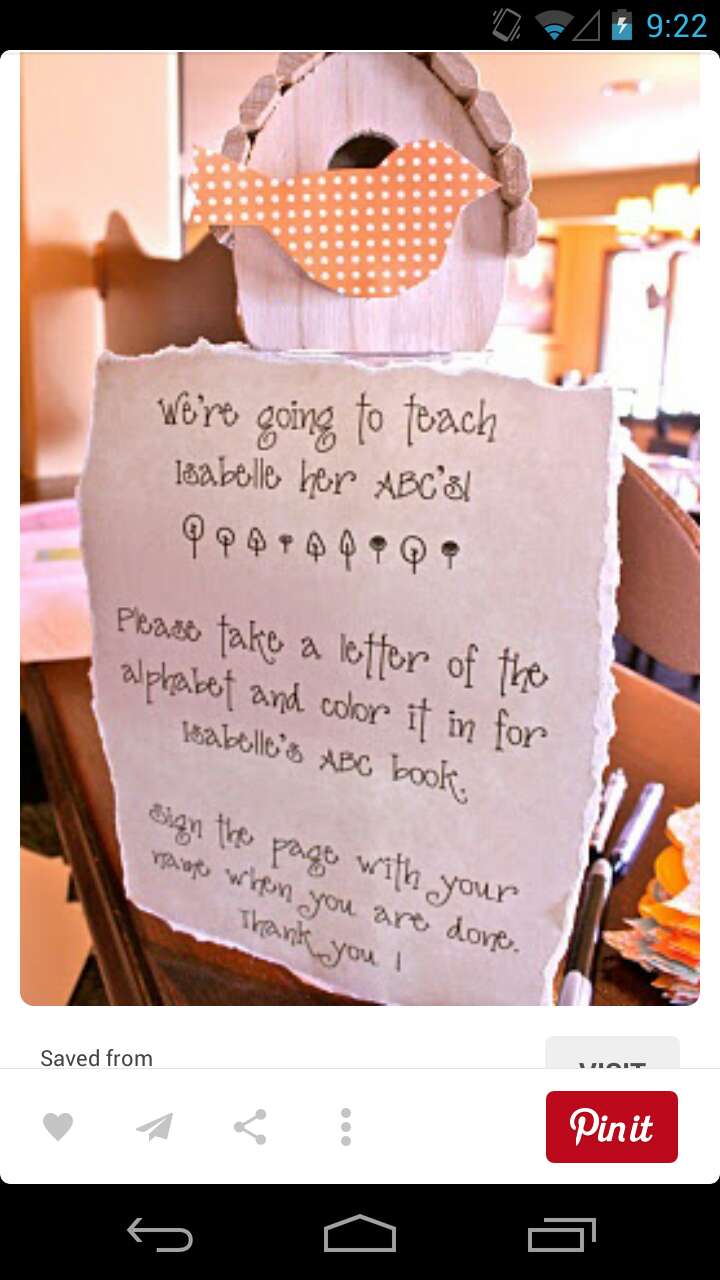 9:22
We're going to teach
Isabelle her ABC's!
Please take a letter of the
alphabet and color it in for
Isabelle's ABC book.
Sign the page with your
name when you are done.
Thank you !
Saved from
VISIT
Pin it